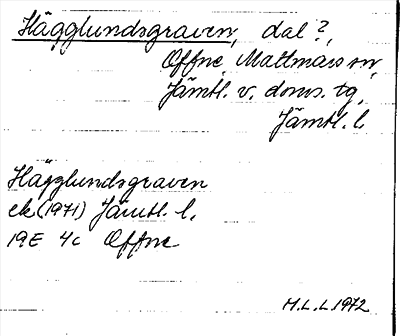 Hägglundsgraven, dal?,
Offne, Mattmars sn,
Jämtl. v. doms. tg,
Jämtl. l.
Hägglundsgraven
ek (1971) Jämtl. l.
19E 4c Offne
M.L.L. 1972